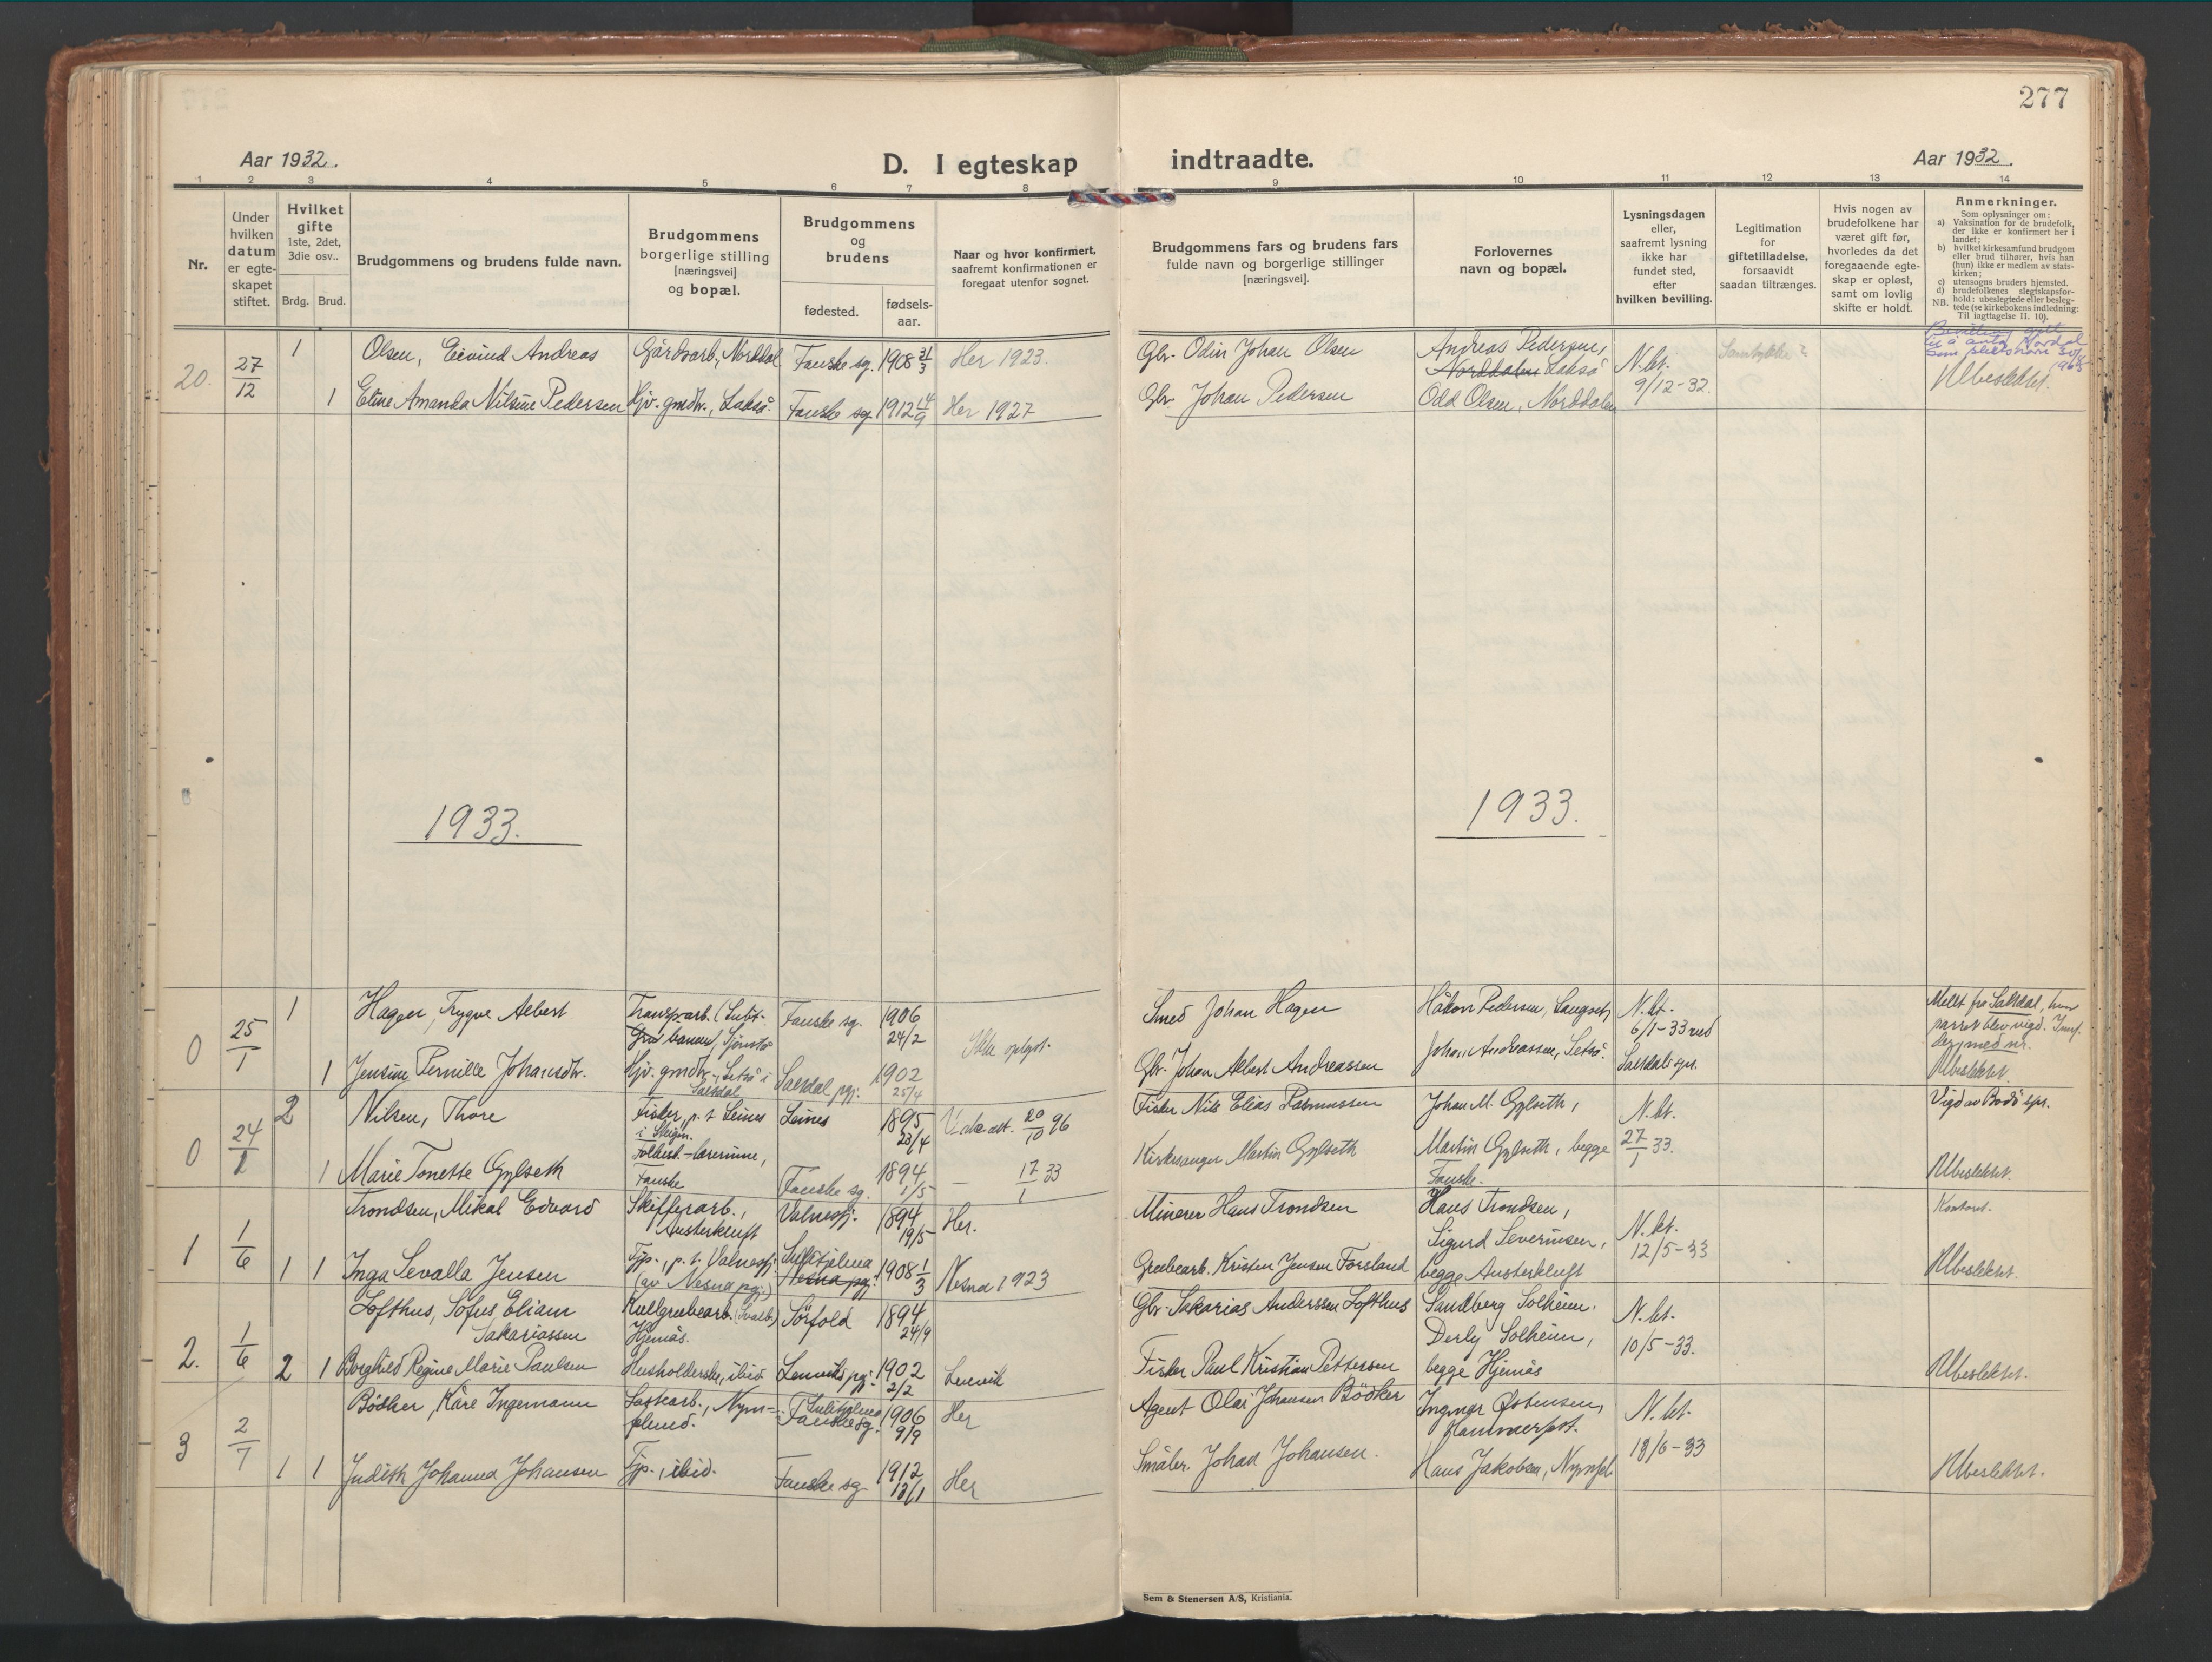 277
Aar 1932.
D. I egteskap indtraadte.
Aar 1932.
1 2 3 4 5 6 7 8 9 10 11 12 13 14
Nr.
Under hvilken datum er egte-skapet stiftet.
Hvilket gifte
1ste, 2det, 3die osv..
Brdg. Brud.
Brudgommens og brudens fulde navn.
Brudgommens borgerlige stilling [næringsvei] og bopæl.
Brudgommens og brudens
fødested.
fødsels-aar.
Naar og hvor konfirmert, saafremt konfirmationen er foregaat utenfor sognet.
Brudgommens fars og brudens fars fulde navn og borgerlige stillinger [næringsvei].
Forlovernes navn og bopæl.
Lysningsdagen eller, saafremt lysning ikke har fundet sted, efter hvilken bevilling.
Legitimation for giftetilladelse, forsaavidt saadan tiltrænges.
Hvis nogen av brudefolkene har været gift før, hvorledes da det foregaaende egte-skap er opløst, samt om lovlig skifte er holdt.
Anmerkninger.
Som oplysninger om:
a) Vaksination for de brudefolk, der ikke er konfirmert her i landet;
b) hvilket kirkesamfund brudgom eller brud tilhører, hvis han (hun) ikke er medlem av stats-kirken;
c) utensogns bruders hjemsted.
d) brudefolkenes slegtskapsfor-hold: ubeslegtede eller besleg-tede (se kirkebokens indledning: Til iagttagelse II. 10).
NB.
20. 27/12 1 Olsen, Eivind Andreas Gårdsarb., Norddal Fauske sg. 1908 21/3 Her 1923. Gbr. Odin Johan Olsen Andreas Pedersen, Norddalen Lakså N.kt. 9/12-32.
Bevilling gitt til å anta Nordal som slektsnavn
1 Eline Amanda Nilsine Pedersen Hjv. gmdtr., Lakså. Fauske sg. 1912 14/9 Her 1927 Gbr. Johan Pedersen Odd Olsen, Norddalen Ubeslektet.
1933.
1933.
0 25/1 1 Hagen, Trygve Albert Transp.arb. Fauske sg. 1906 24/2 Ikke oplyst. Smed Johan Hagen Håkon Pedersen, Langset, N.kt. 6/1-33 ved Saltdals spr. Meldt fra Saltdal, hvor parret blev vigd.
1 Jensine Pernille Johansdtr. Hjv. gmdtr., Setså i Saltdal Saltdal pgj. 1902 25/4 Gbr. Johan Albert Andreassen Johan Andreassen, Setså. Ubeslektet.
0 24/2 2 Nilsen, Thore Fisker, p.t. Leines i Steigen. Leines 1895 23/4 20/10 96 Fisker Nils Elias Rasmussen Johan M. Gylseth, N.kt. 27/1 33. Vigd av Bodö spr.
1 Marie Tonette Gylseth lærerinne, Fauske Fauske sg. 1894 1/5 17/1 33 Kirkesanger Martin Gylseth Martin Gylseth, begge Fauske. Ubeslektet.
1 1/6 1 Trondsen, Mikal Edvard Skifferarb., Austerkluft Valnesfj. 1894 19/5 Her. Minerer Hans Trondsen Hans Trondsen, Sigurd Severinsen, N.kt. 12/5-33 Kontoret.
1 Inga Sevalla Jensen Tjp., p.t. Valnesfj. (av Nesna pgj.) Sulitjelma Nesna pgj. 1908 1/3 Nesna 1923 Grubearb. Kristen Jensen Forsland begge Austerkluft Ubeslektet.
2. 1/6 2 Lofthus, Sofus Eliam Sakariassen Kullgrubearb. (Svalb.) Hjemås. Sörfold 1894 24/9 Gbr. Sakarias Anderssen Lofthus Sandberg Solheim. Derly Solheim, N.kt. 10/5-33.
1 Borghild Regine Marie Paulsen Husholderske, ibid Lenvik pgj. 1902 2/2 Lenvik Fisker Paul Kristian Pettersen begge Hjemås Ubeslektet.
3 2/7 1 Bödker, Kåre Ingemann Lastearb., Nym-plund. Sulitjelma Fauske sg. 1906 9/9 Her Agent Olai Johansen Bödker Ingmar Østensen, N.kt. 18/6-33
1 Judith Johanna Johansen Tjp., ibid. Fauske sg. 1912 13/1 Her Småbr. Johan Johansen. Hans Jakobsen, Ubeslektet.
Sem & Stenersen A/S, Kristiania.